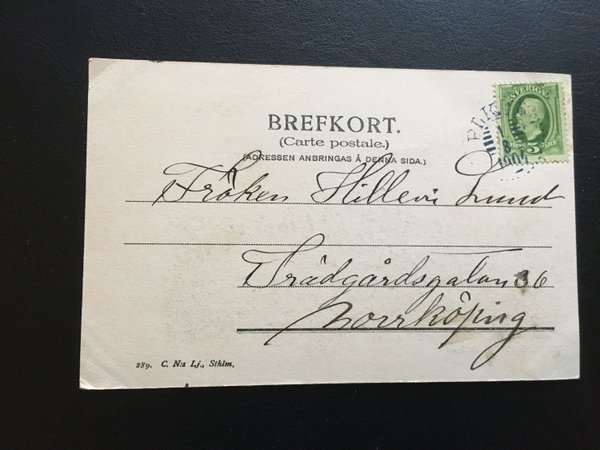 BREFKORT.
(Carte postale.)
(ADRESSEN ANBRINGAS Å DENNA SIDA.)
SVERIGE
5 5
PLK
1907
Fröken Hillevi Lund
Trädgårdsgatan 36
Norrköping
289. C. N:s Lj., Sthlm.